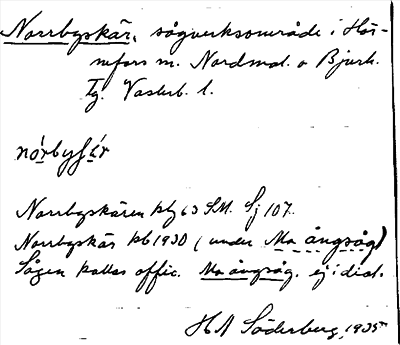 Norrbyskär, sågverksområde i Hör-
nefors m. Nordmal. o Bjurh.
Tg. Västerb. l.
nórbyʃǽr
Norrbyskären kbg 63 S.M. Sj 107.
Norrbyskär kb 1930 (under Mo ångsåg)
Sågen kallas offic. Mo ångsåg, ej i dial.
H A Söderberg, 1935